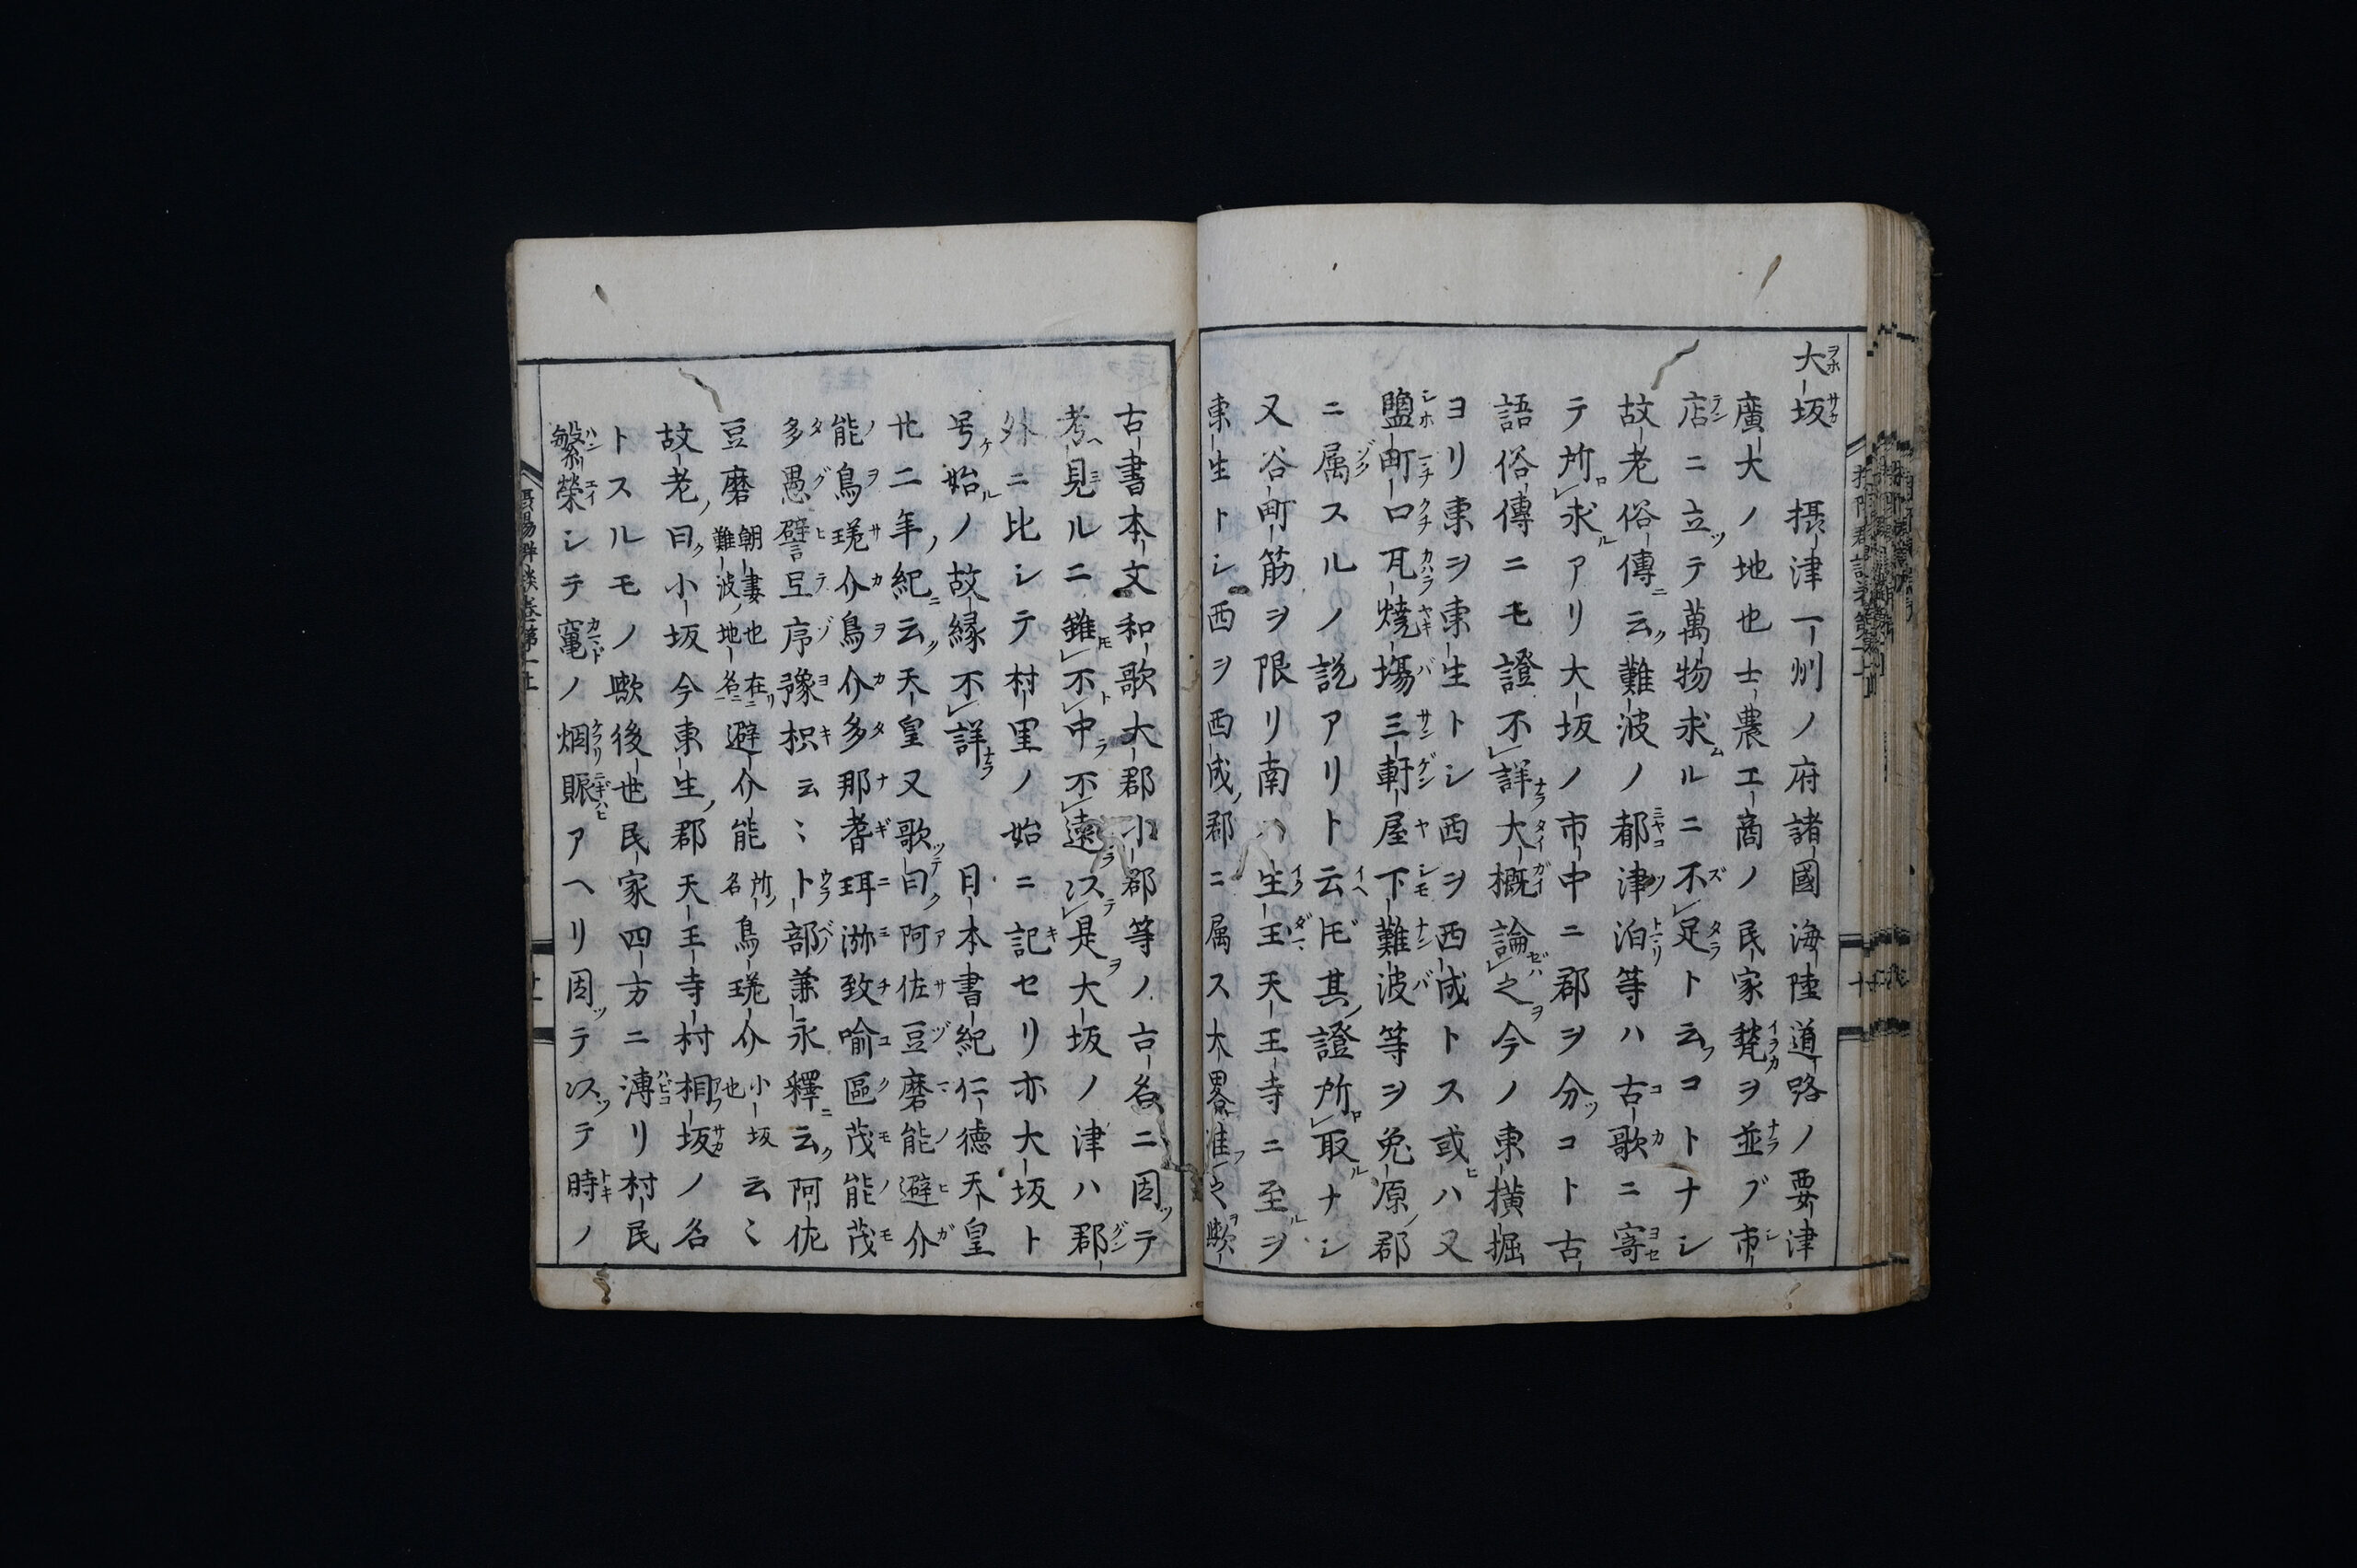 大坂 摂津一州ノ府諸國海陸道路ノ要津
廣大ノ地也士農工商ノ民家甍ヲ並ブ市
店ニ立テ萬物求ルニ不足ト云コトナシ
故老俗傳云難波ノ都津泊等ハ古歌ニ寄
テ所求アリ大坂ノ市中ニ郡ヲ分コト古
語俗傳ニモ證不詳大概論之今ノ東横堀
ヨリ東ヲ東生トシ西ヲ西成トス或ハ又
鹽町口瓦焼場三軒屋下難波等ヲ兔原郡
ニ属スルノ説アリト云ドモ其證所取ナシ
又谷町筋ヲ限リ南ハ生玉天王寺ニ至ヲ
東生トシ西ヲ西成郡ニ属ス大畧准之歟
古書本文和歌大郡小郡等ノ古名ニ因テ
考見ルニ雖不中不遠以是大坂ノ津ハ郡
外ニ比シテ村里ノ始ニ記セリ亦大坂ト
号始ノ故縁不詳 日本書紀仁徳天皇
廿二年紀云天皇又歌曰阿佐豆磨能避介
能烏瑳介烏介多那耆珥瀰致喩區茂能茂
多愚譬豆序豫枳云〻卜部兼永釋云阿佐
豆磨朝妻也在難波地名避介能所名烏瑳介小坂也云〻
故老曰小坂今東生郡天王寺村相坂ノ名
トスルモノ歟後世民家四方ニ溥リ村民
繁榮シテ竃ノ烟賑アヘリ因テ以テ時ノ